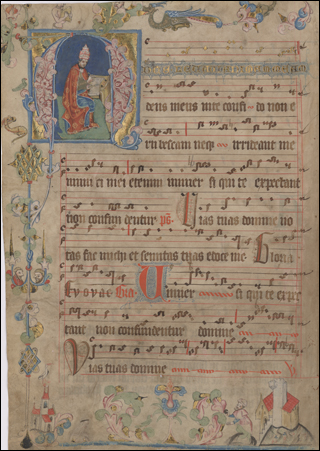 deus meus in te confi do non e
ru bescam neqз irrideant me
inimi ci mei etenim univer si qui te expectant
non confun dentur ps Vias tuas domine no
tas fac michi et semitas tuas edoce me Gloria
Euouae Gra Univer si qui te expec
tant non confundentur domine
Vias tuas domine